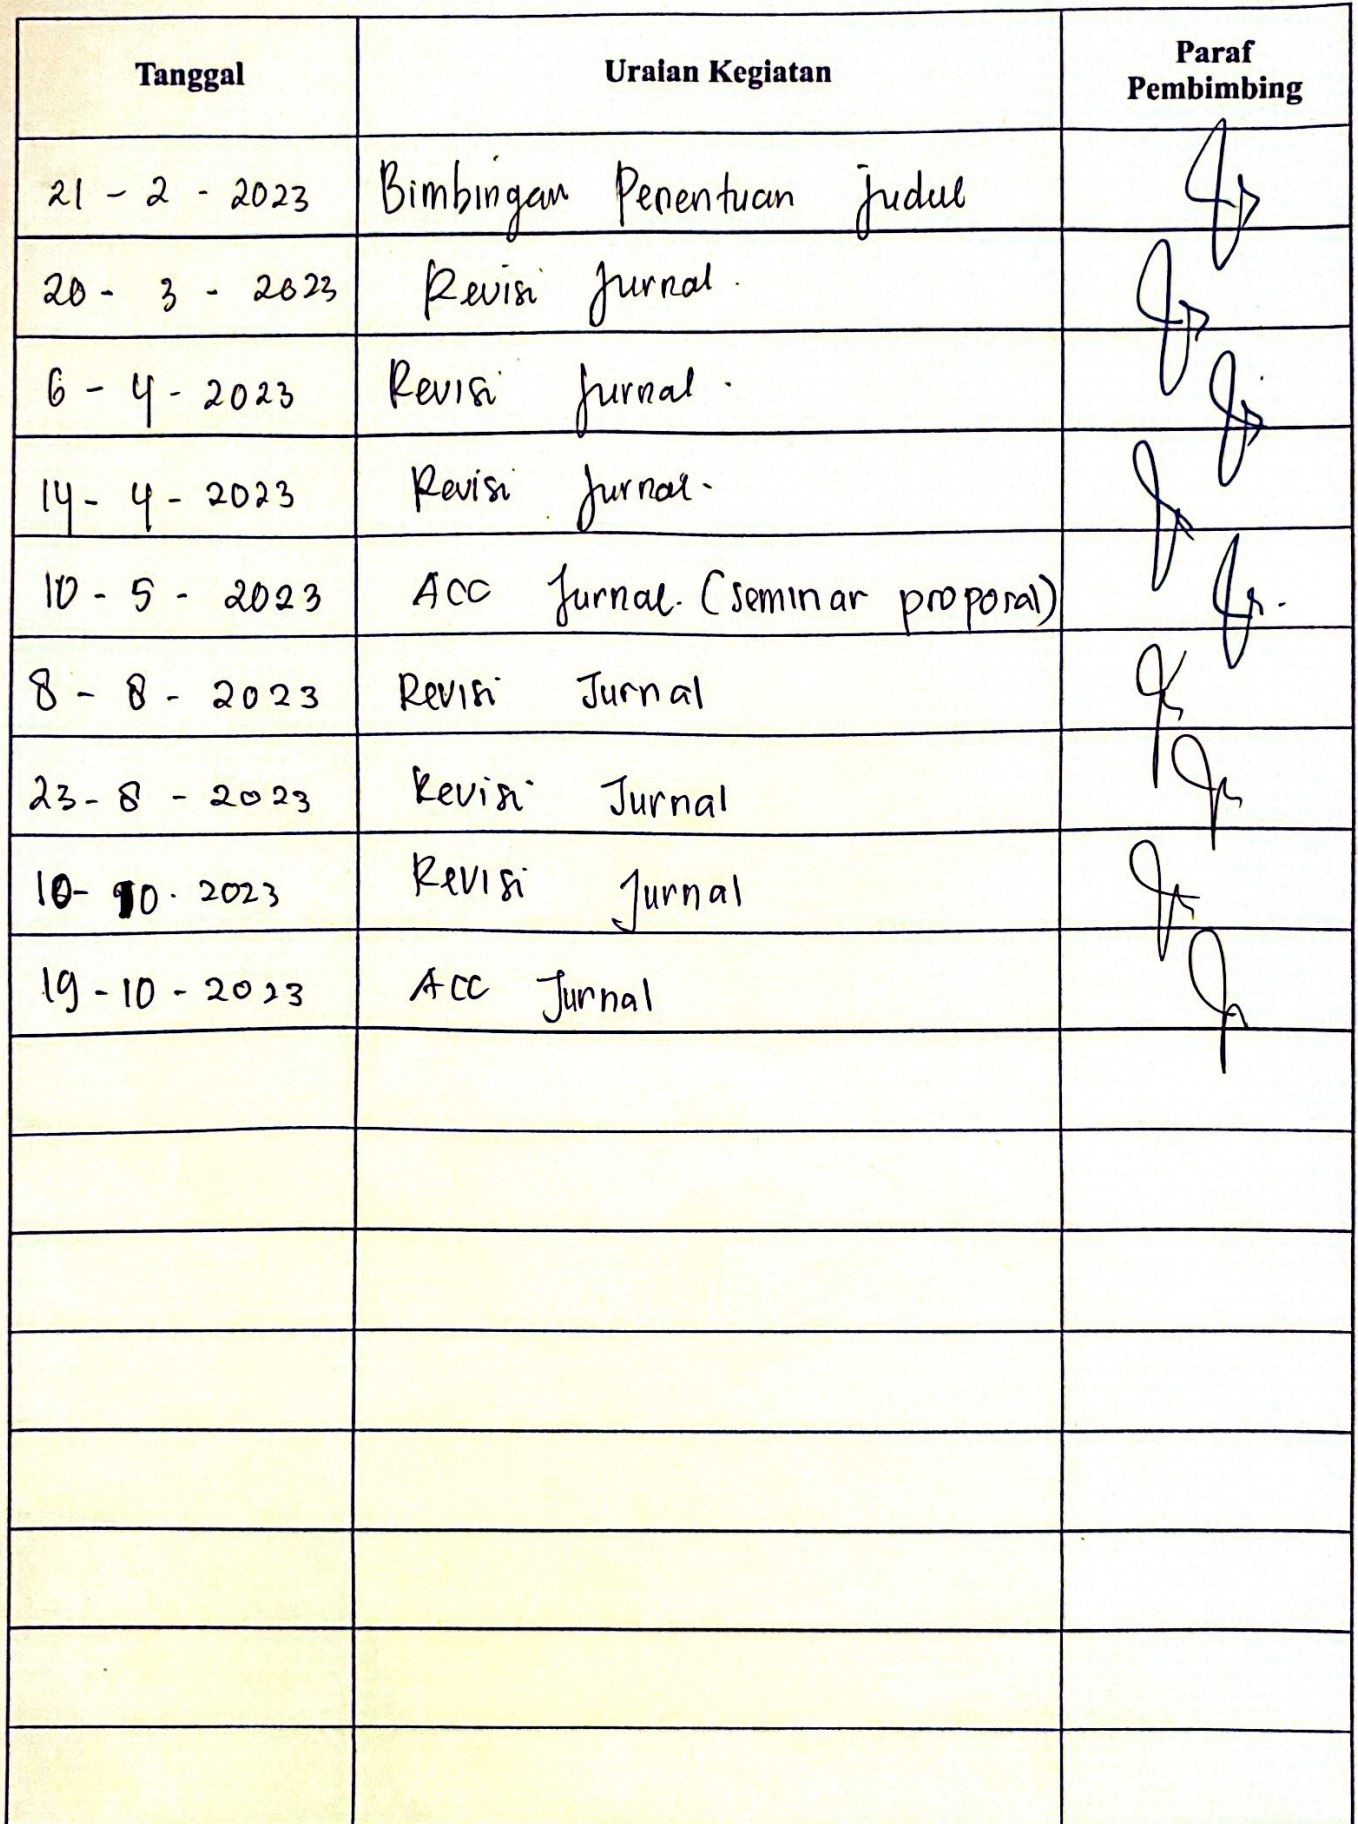 Tanggal Uraian Kegiatan Paraf
Pembimbing
21 - 2 - 2023 Bimbingan Penentuan judul
20 - 3 - 2023 Revisi Jurnal.
6 - 4 - 2023 Revisi Jurnal.
14 - 4 - 2023 Revisi Jurnal.
10 - 5 - 2023 ACC Jurnal. (seminar proposal)
8 - 8 - 2023 Revisi Jurnal
23 - 8 - 2023 Revisi Jurnal
10 - 10. 2023 Revisi Jurnal
19 - 10 - 2023 ACC Jurnal